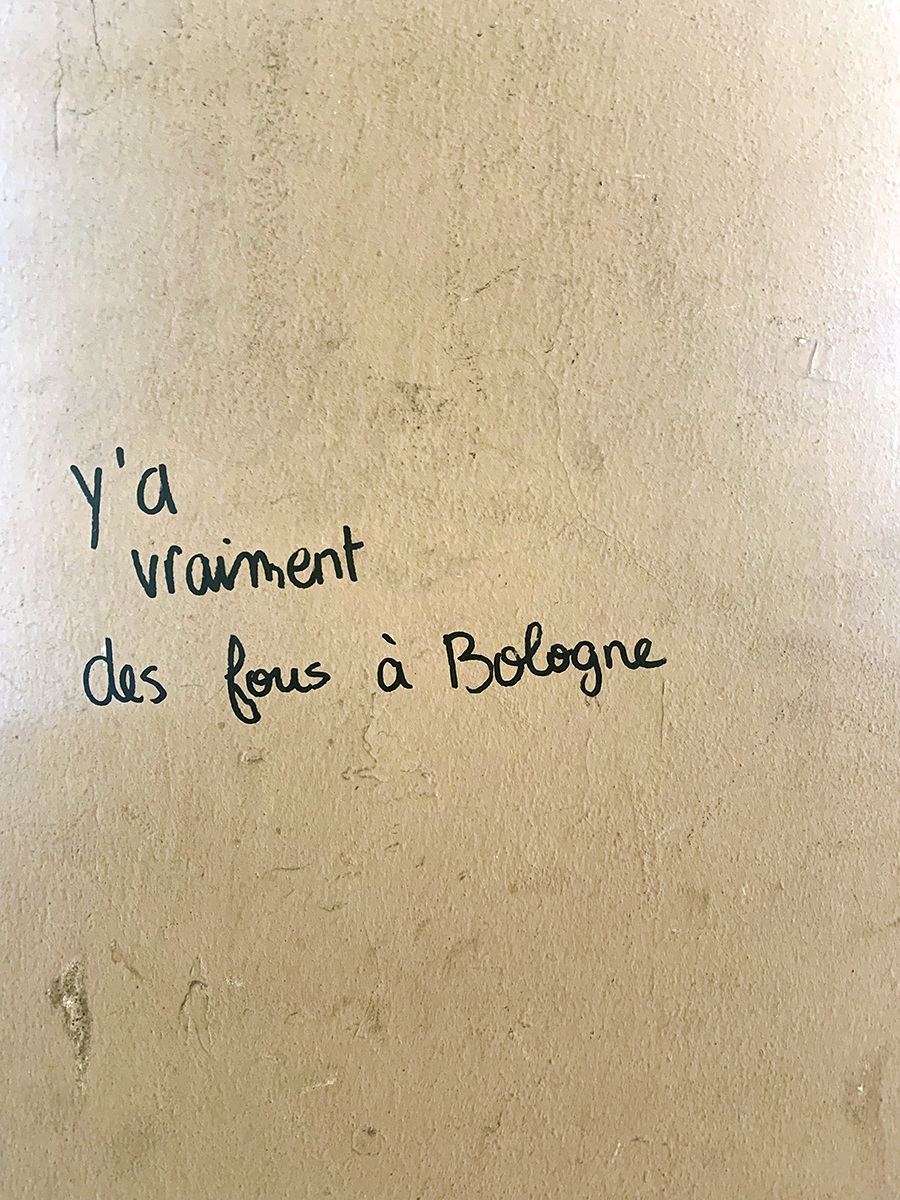 y'a
vraiment
des fous à Bologne